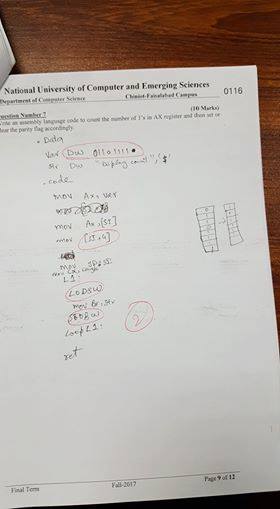 National University of Computer and Emerging Sciences
Department of Computer Science Chiniot-Faisalabad Campus 0116
Question Number 7 (10 Marks)
Write an assembly language code to count the number of 1's in AX register and then set or
clear the parity flag accordingly.
. Data
Var DW 01101111
Str DW "Display count", '$'
. code
mov Ax, var
mov Ax, [SI]
mov [SI+4]
mov
L1:
LODSW
mov Bx, Str
Loop L1:
2
ret
Final Term Fall-2017 Page 9 of 12